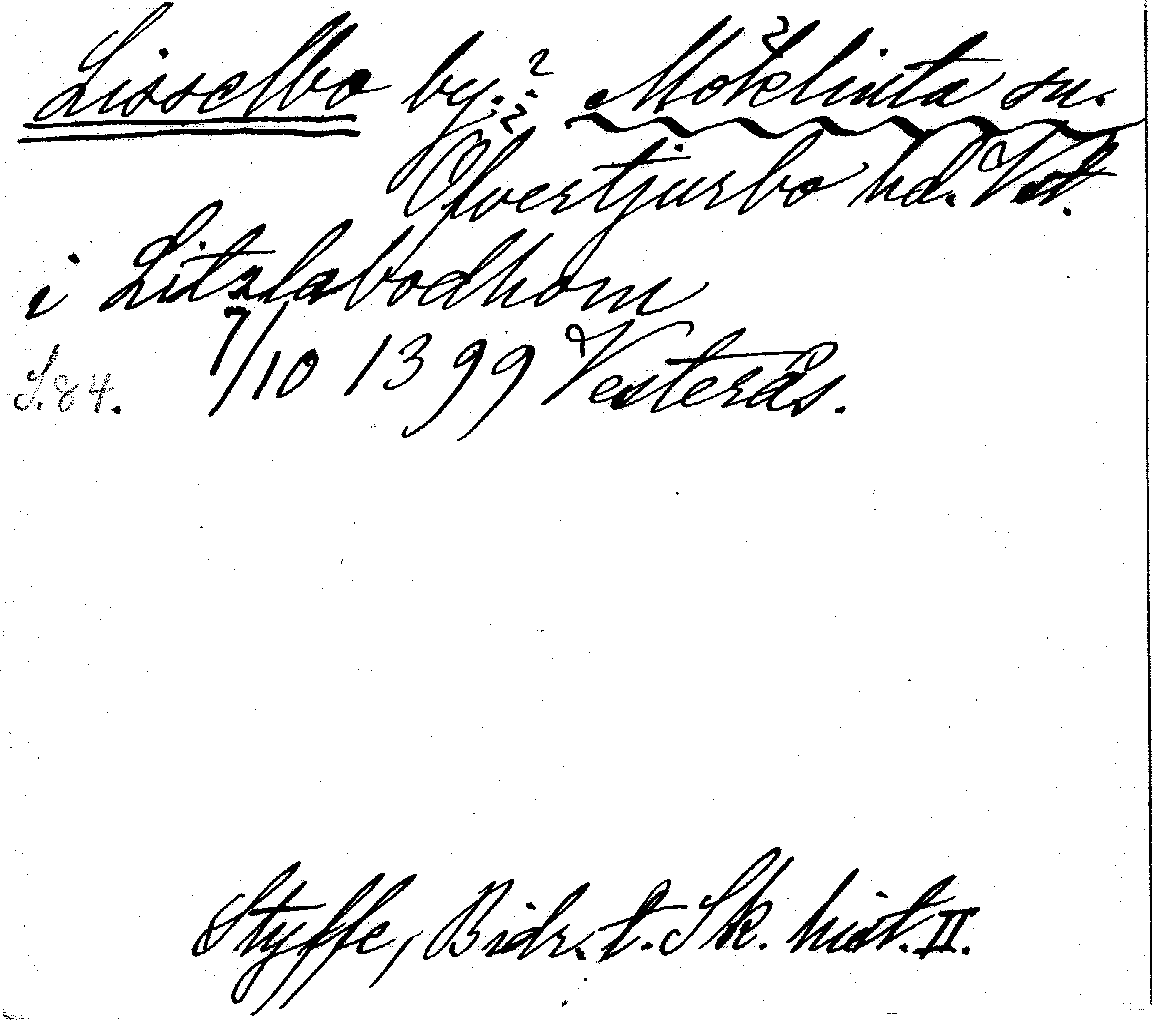 Lisselbo by. ? Möklinta sn.
Öfvertjurbo hd. Vstl.
i Litzlabodhom
7/10 1399 Vesterås.
S. 84.
Styffe, Bidr. t. Sk. hist. II.